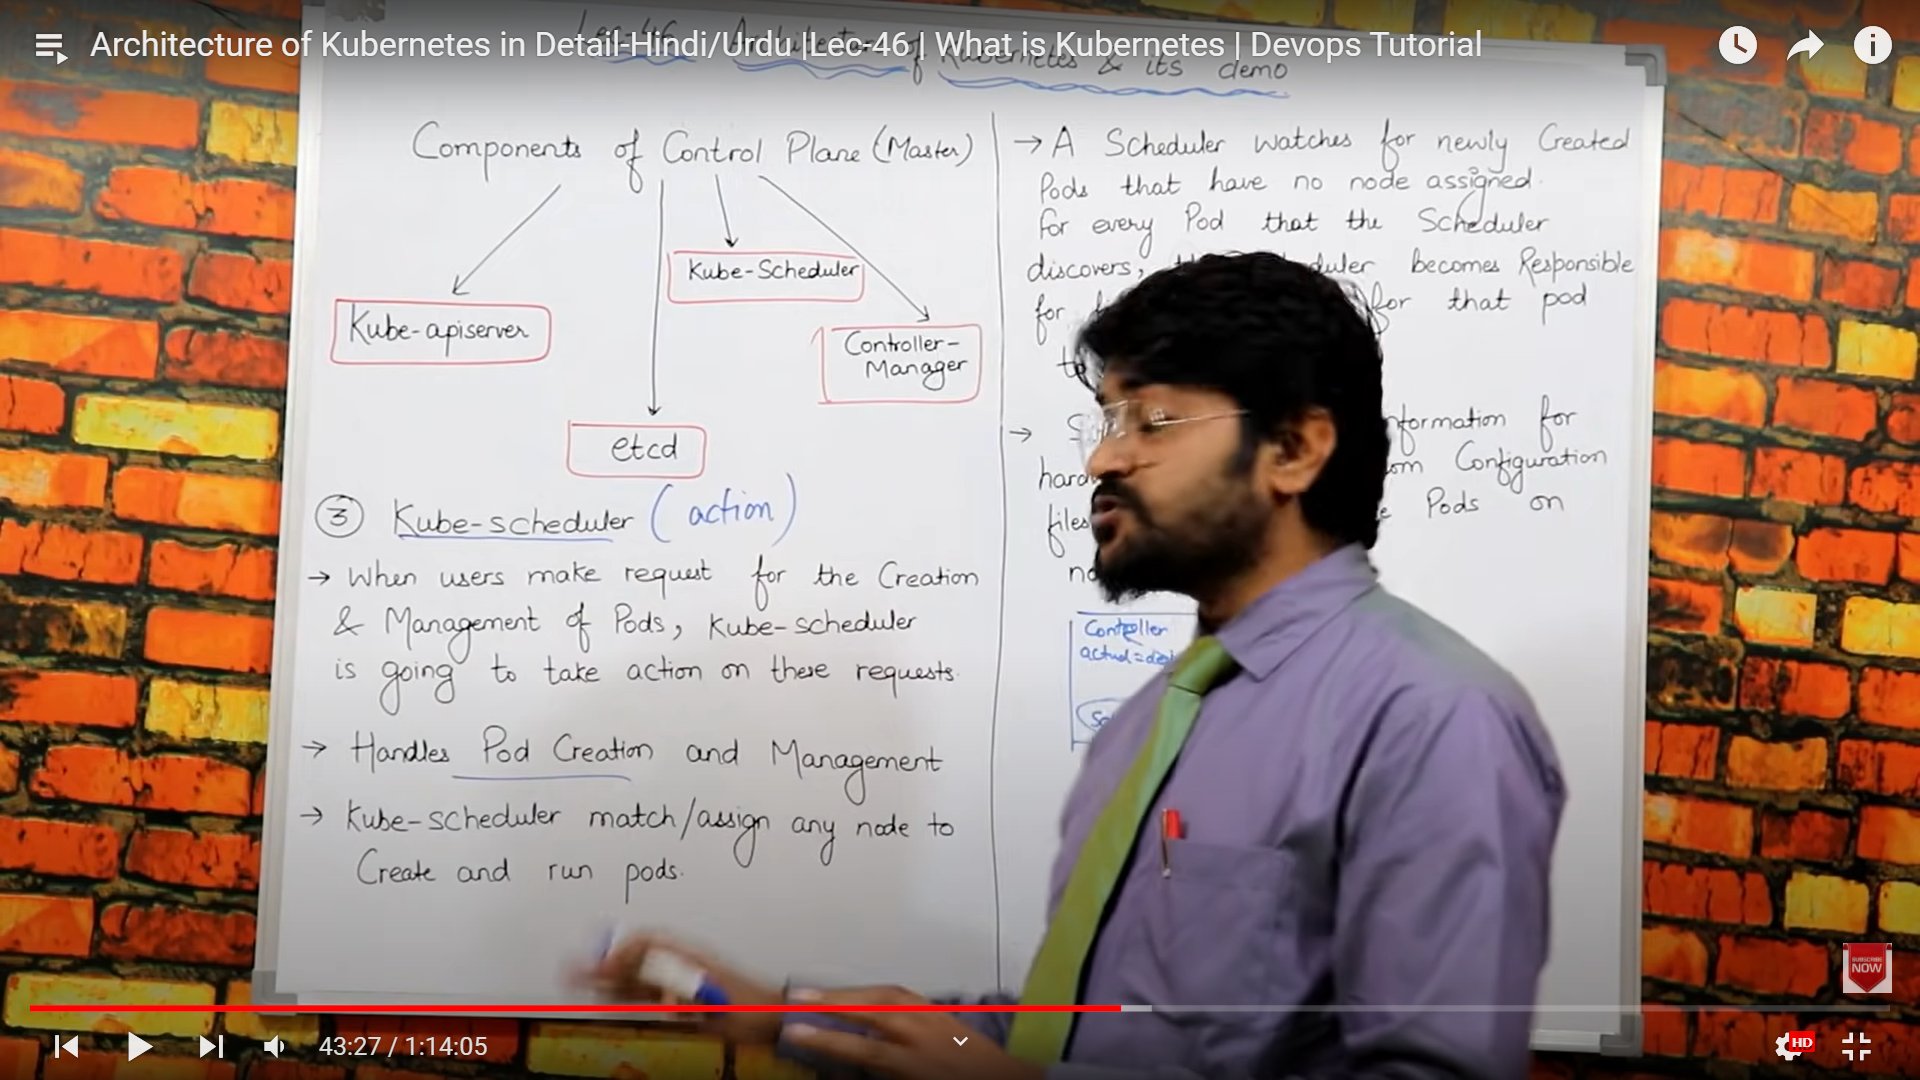 Architecture of Kubernetes in Detail-Hindi/Urdu |Lec-46 | What is Kubernetes | Devops Tutorial
Lec-46 Architecture of Kubernetes & its demo
Components of Control Plane (Master)
Kube-apiserver
etcd
Kube-Scheduler
Controller-
Manager
③ Kube-scheduler (action)
→ When users make request for the Creation
& Management of Pods, Kube-scheduler
is going to take action on these requests.
→ Handles Pod Creation and Management
→ Kube-scheduler match/assign any node to
Create and run pods.
→ A Scheduler watches for newly Created
Pods that have no node assigned.
for every Pod that the Scheduler
discovers, becomes Responsible
for for that pod
→ for
Configuration
files Pods on
Controller
SUBSCRIBE
NOW
43:27 / 1:14:05
HD